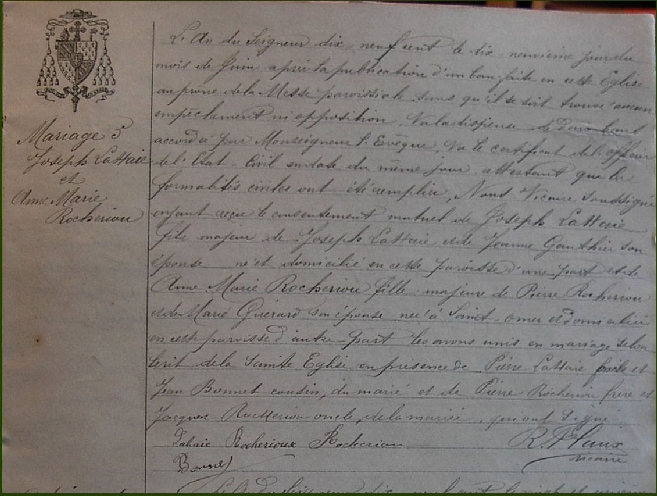 Mariage 5
Joseph Lattaie
et
Anne Marie
Rocheriou
L'An du Seigneur dix-neuf cent le dix-neuvième jour du
mois de Juin après la publication d'un ban faite en cette Eglise
au prone de la Messe paroissiale sans qu'il se soit trouvé aucun
empêchement ni opposition Vu la dispense
accordée par Monseigneur l'Evêque, Vu le certificat de l'officier
de l'Etat-Civil en date du même jour, attestant que les
formalités civiles ont été remplies, Nous Vicaire soussigné
ayant reçu le consentement mutuel de Joseph Lattaie
fils majeur de Joseph Lattaie et de Jeanne Gauthier son
épouse né et domicilié en cette paroisse d'une part et de
Anne Marie Rocheriou fille majeure de Pierre Rocheriou
et de Marie Guérard son épouse née à Saint-Omer et domiciliée
en cette paroisse d'autre part les avons unis en mariage selon
le rit de la Sainte Eglise en présence de Pierre Lattaie frère et
Jean Bonnet cousin du marié et de Pierre Rocheriou frère et
Jacques oncle de la mariée, qui ont signé
Lataie Rocherioux Rocheriou
Bonnet
vicaire